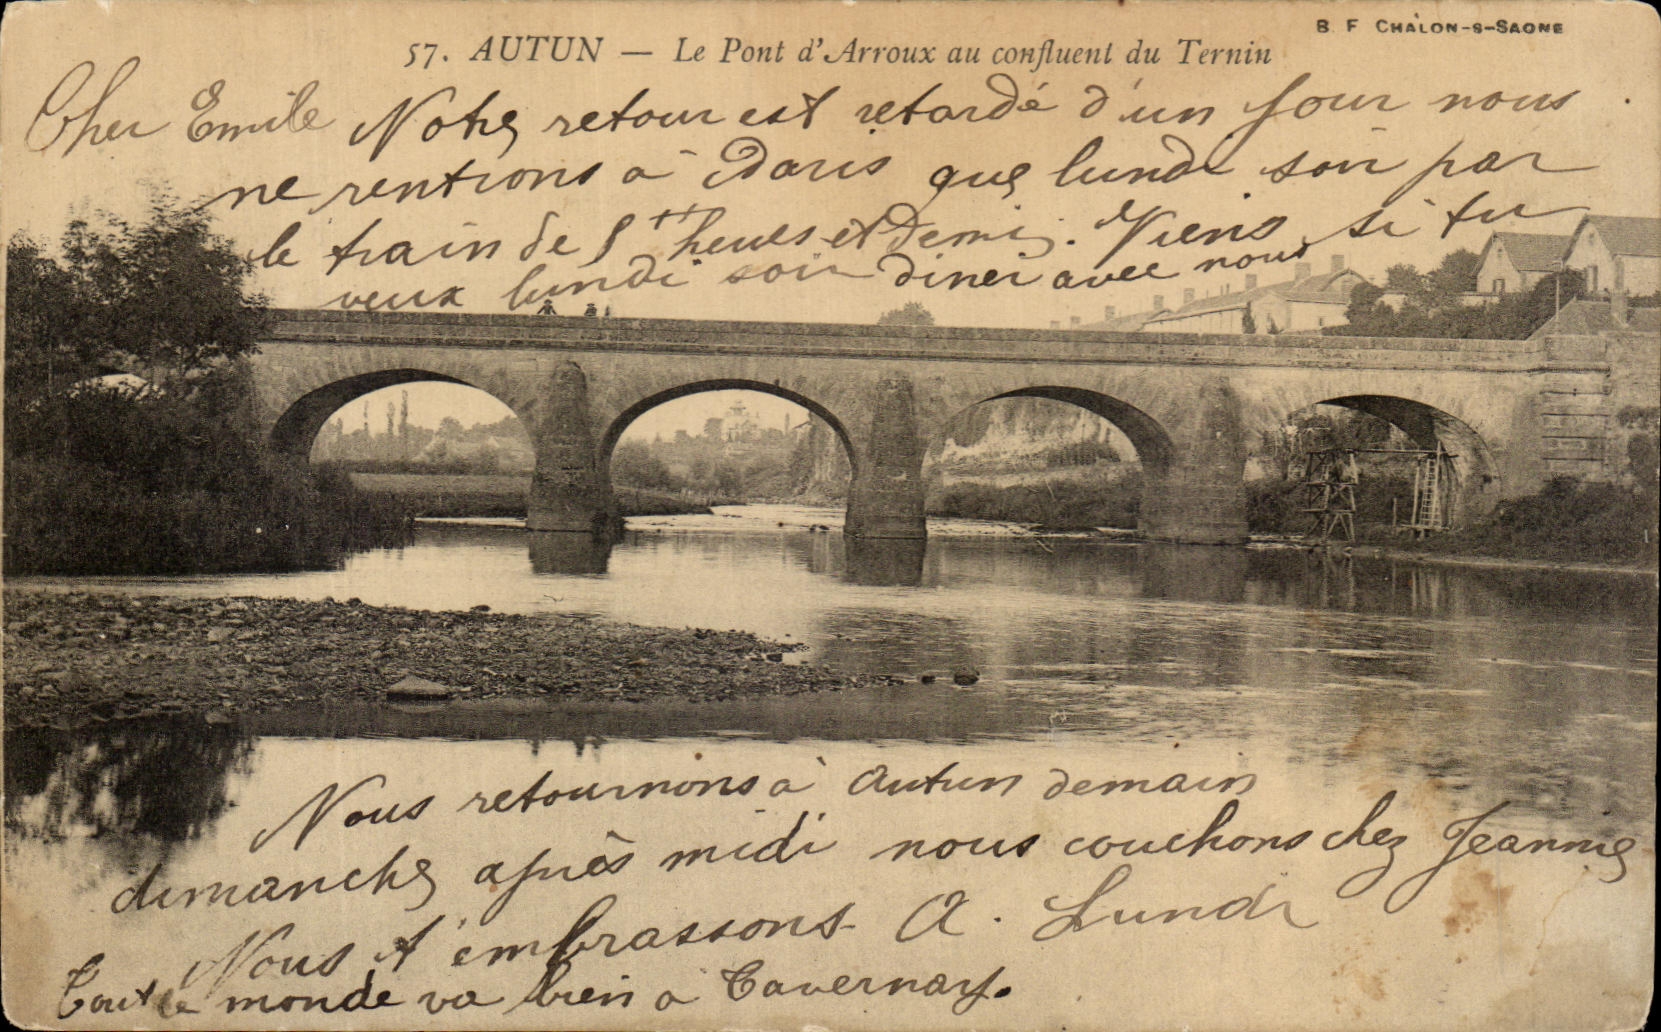 B. F. CHALON-S-SAONE
57. AUTUN — Le Pont d'Arroux au confluent du Ternin
Cher Emile Notre retour est retardé d'un jour nous
ne rentrons à Paris que lundi soir par
le train de heures et demi. Viens si tu
veux lundi soir diner avec nous
Nous retournons à Autun demain
dimanche après midi nous couchons chez Jeannie
Nous t'embrassons A. Lundi
Tout le monde va bien à Tavernay.